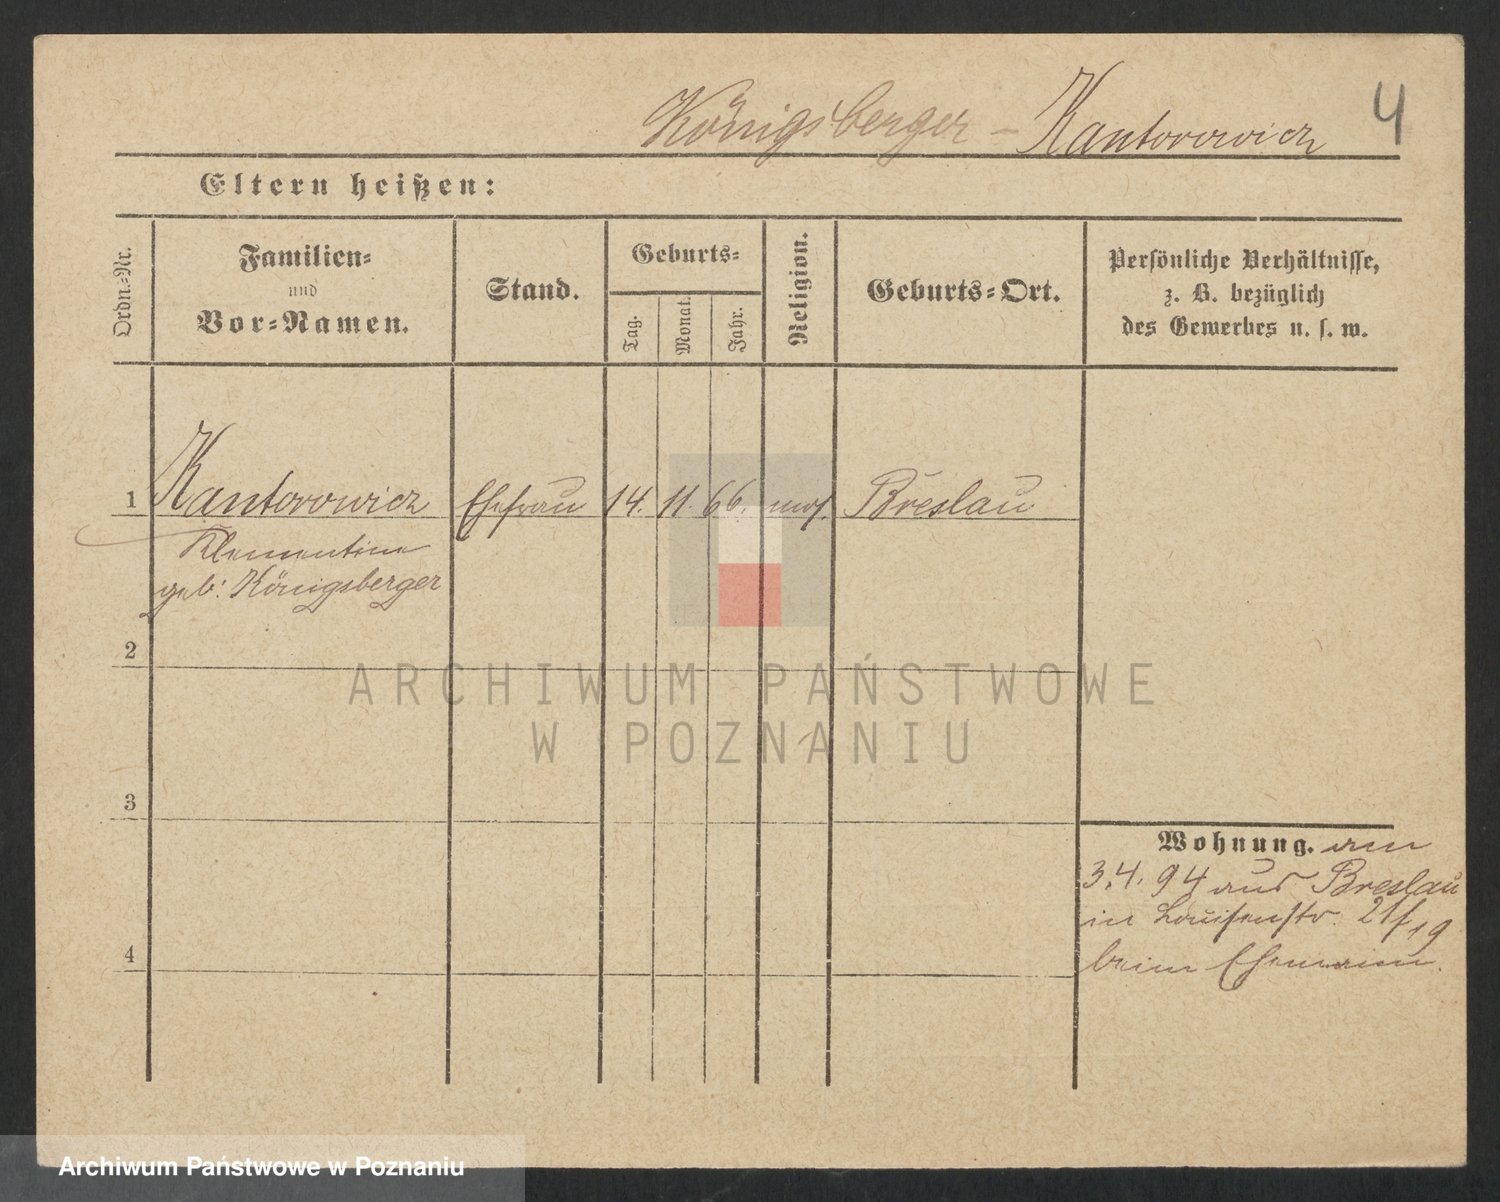 Königsberger - Kantorowicz
4
Eltern heißen:
Ordn.-Nr.
Familien-
und
Vor-Namen.
Stand.
Geburts-
Tag.
Monat.
Jahr.
Religion.
Geburts-Ort.
Persönliche Verhältnisse,
z. B. bezüglich
des Gewerbes u. s. w.
1 Kantorowicz Ehefrau 14. 11. 66. mos. Breslau
Klementine
geb. Königsberger
2
3
4
Wohnung. am
3.4.94 aus Breslau
in Louisenstr. 
beim Ehemann.
ARCHIWUM PAŃSTWOWE
W POZNANIU
Archiwum Państwowe w Poznaniu